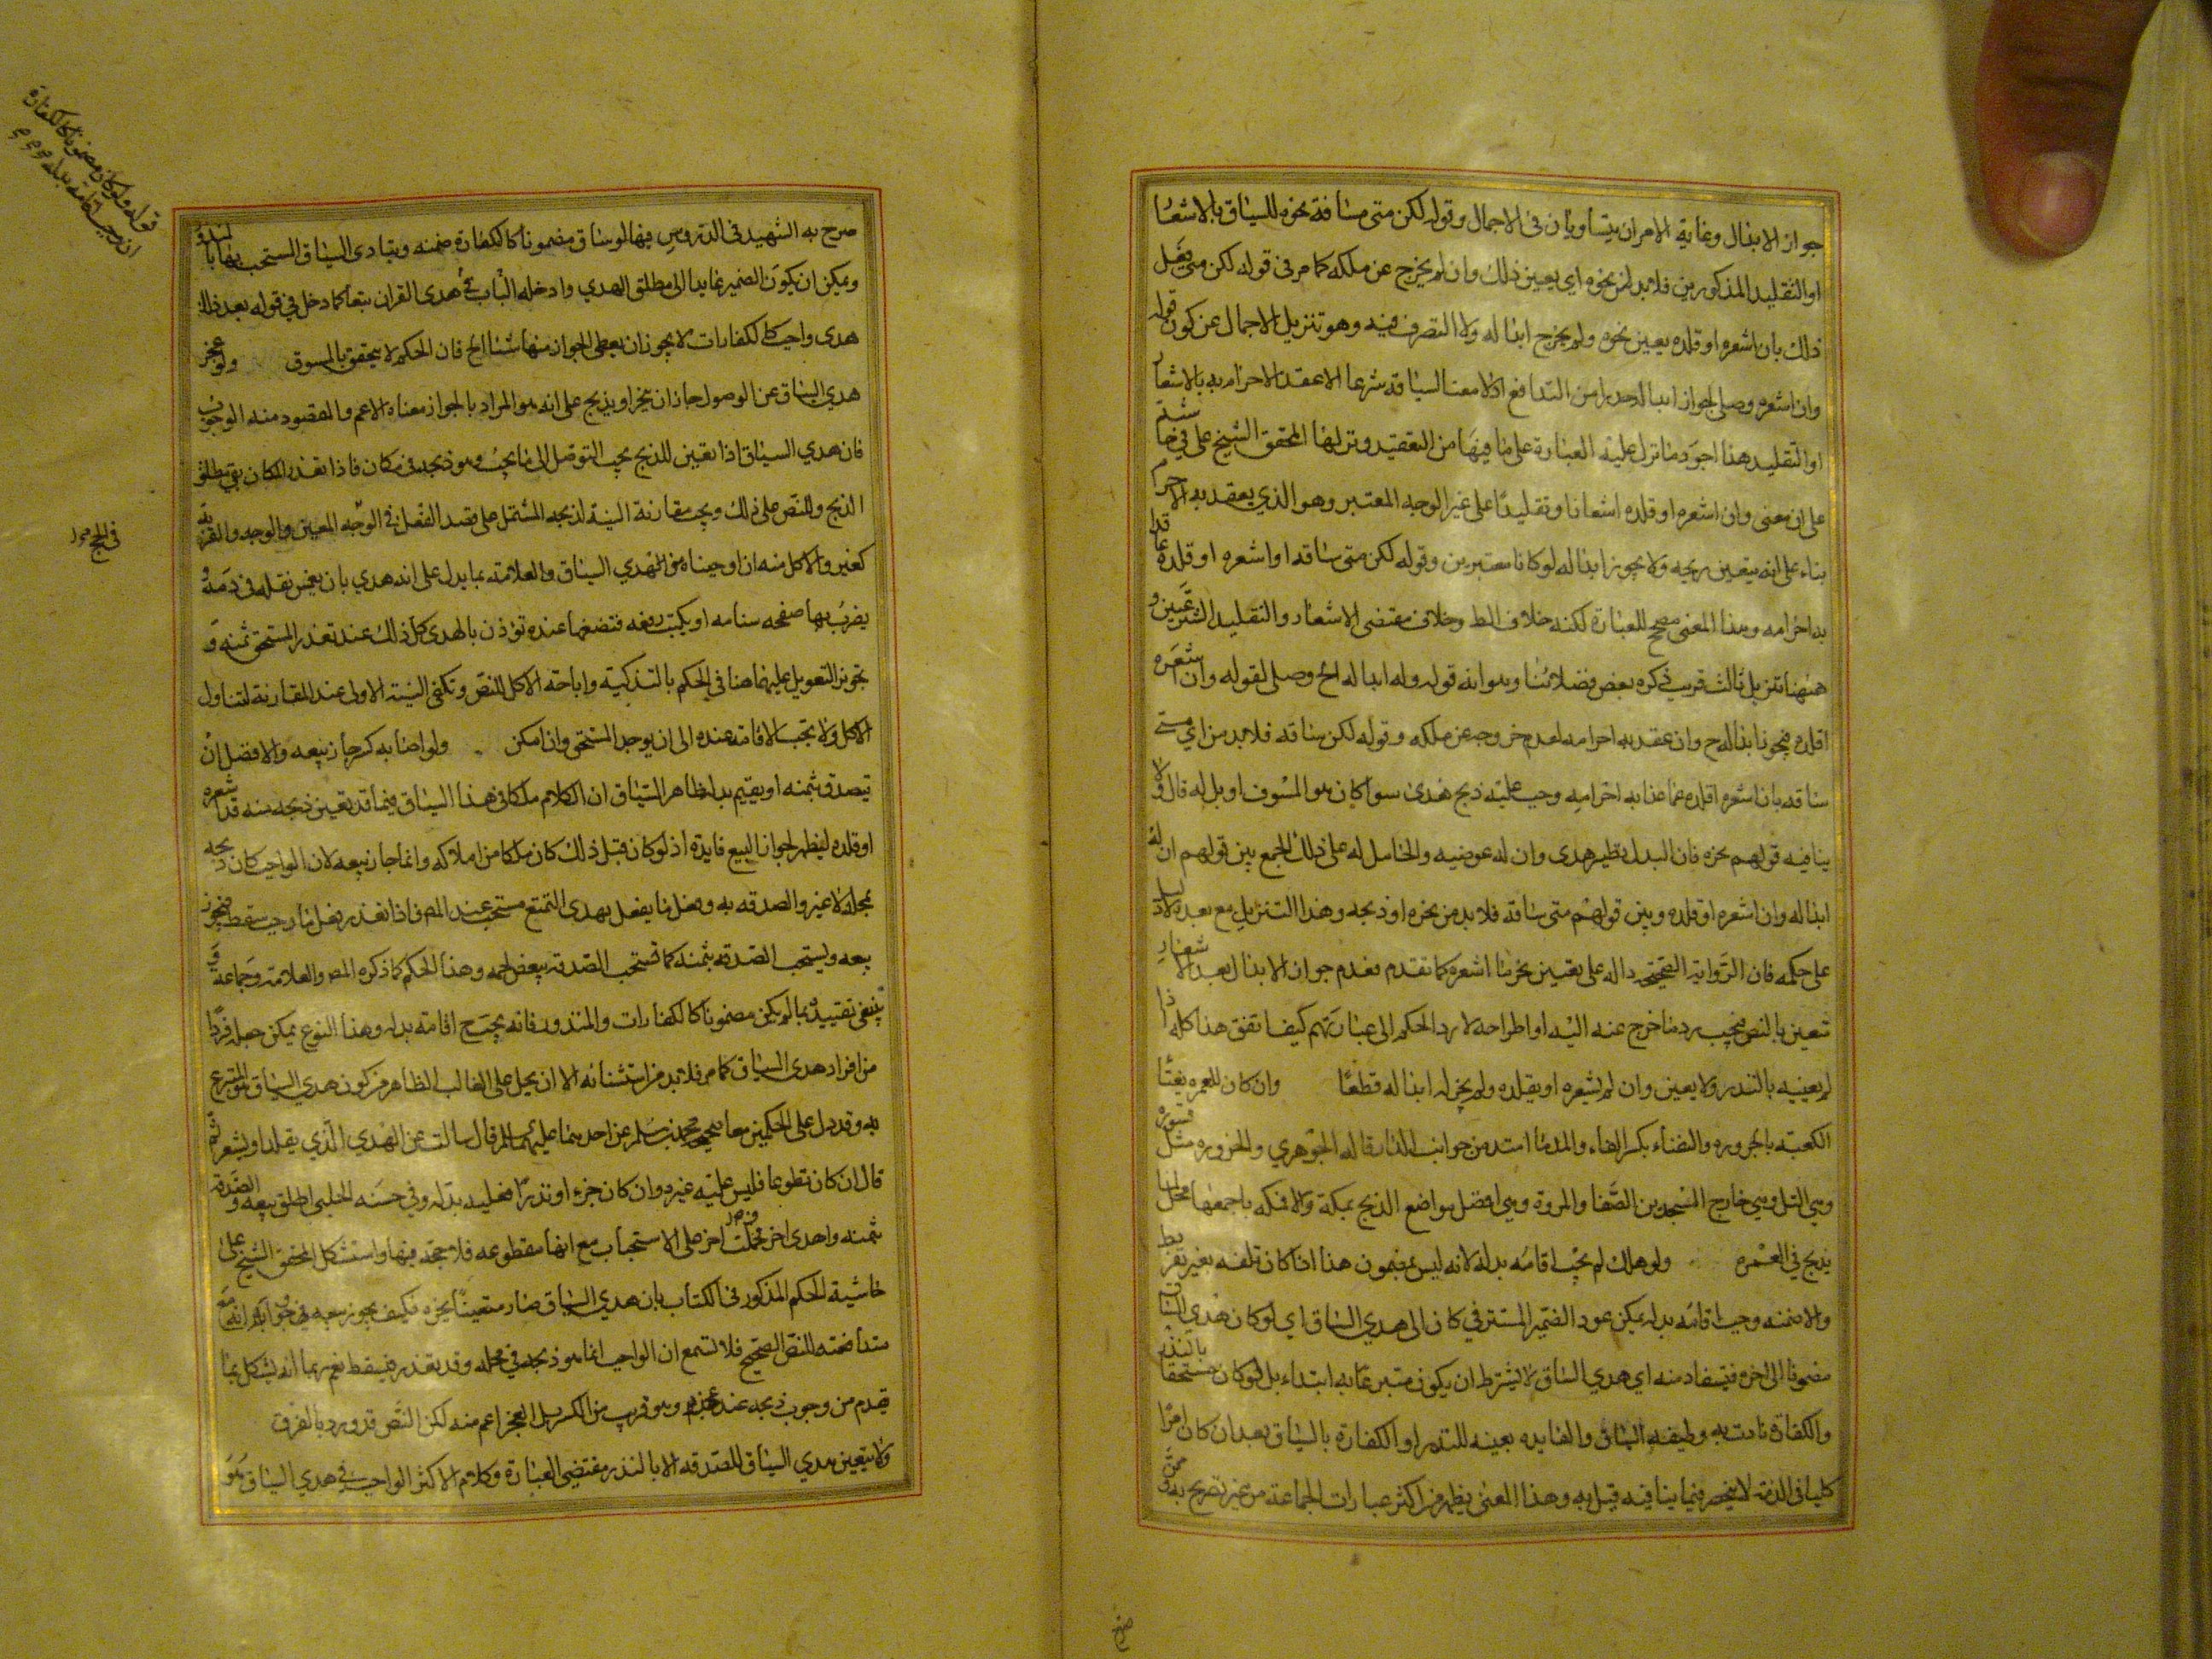 جواز الابدال وغاية الامران يتساويان فى الاجمال وقوله لكن متى ساقه نحره للسياق بالاشعا
او التقليد المذكورين فلابد من نحره اى يعين ذلك وان لم يخرج عن ملكه كما مر فى قوله لكن متى فعل
ذلك بان اشعره او قلده يعين نحره ولم يخرج ابداله ولا التصرف فيه وهو تنزيل الاجمال عن كون قوله
وان اشعره وصلى لجواز ابداله من التدافع اذ لا معنا لسياقه شرعا الا عقد الاحرام به بالاشعار
او التقليد هذا اجود ما تنزل عليه العبارة على ما فيها من التعقيد ونزلها المحقق الشيخ على فى حاشيته
على ان معنى وان اشعره او قلده اشعارا وتقليدا على غير الوجه المعتبر وهو الذي يعقد به الاحرام
بناء على انه يتعين ولا يجوز ابداله لو كانا معتبرين وقوله لكن متى ساقه او اشعره او قلده عاقدا
به احرامه وهذا المعنى مصحح للعبارة لكنه خلاف الظ وخلاف مقتضى الاشعار والتقليد الشرعيين و
ههنا تنزيل ثالث قريب ذكره بعض فضلائنا وهو انه قوله وله ابداله الخ وصلى لقوله وان اشعره
اقلده فيجوز ابداله ح وان عقد به احرامه لعدم خروجه عن ملكه وقوله لكن ساقه فلابد من اي متى
ساقه بان اشعره اقلده عاقدا به احرامه وجب عليه ذبح هدى سوا كان هو المسوق او بدله قال ولا
ينافيه قولهم نحره فان البدل نظير هدى وان له عوضيه والحامل له على ذلك الجمع بين قولهم ان له
ابداله وان اشعره او قلده وبين قولهم متى ساقه فلابد من نحره او ذبحه وهذا التنزيل مع بعده لا دليل
على حكمه فان الرواية الصحيحة داله على تعين نحر ما اشعره كما تقدم فعدم جواز الابدال بعد الاشعار
تعين بالنص فيجب رد ما خرج عنه اليه او اطراحه لا رد الحكم الى عباراتهم كيف اتفق هذا كله اذا
لم يعينه بالنذر ولا يعين وان لم يشعره او يقلده ولم يخز له ابداله قطعا وان كان للعمره بفنا
الكعبة بالحزوره والفناء بكسر الفاء والمد ما امتد من جوانب الدار قاله الجوهري والحزوره مثل قسوره
وهي التل وهي خارج المسجد بين الصفا والمروة وهي افضل مواضع الذبح بمكة والا فمكه باجمعها محل لما
يذبح فى العمره ولو هلك لم يجب اقامه بدله لانه ليس بمضمون هذا اذا كان تلفه بغير تفريط
والا ضمنه وجب اقامه بدله يمكن عود الضمير المستتر فى كان الى هدي السياق اي لو كان هدي السياق
مضمونا الى اخره فيستفاد منه اي هدي السياق لا يشترط ان يكون متبرعا به ابتداء بل لو كان مستحقا بالنذر
والكفارة تادت به وظيفه السياق والفايده بعينه للنذر او الكفارة بالسياق بعد ان كان امرا
كليا فى الذمة لا ينحصر فيما ينافيه قبل به وهذا المعنى يظهر من اكثر عبارات الجماعة من غير تصريح به وممن
صرح به الشهيد فى الدروس فيها لو ساق مضمونا كالكفارة ضمنه ويتادى السياق المستحب بها بالنذر و
ويمكن ان يكون الضمير عايدا الى مطلق الهدي وادخله الباب فى هدى القران تبعا كما دخل فى قوله بعد ذلك
هدى واجب كالكفارات لا يجوز ان يعطى الجواز منها شئا الخ فان الحكم لا يتحقق بالمسوق ولو عجز
هدي السياق عن الوصول جاز ان ينحر او يذبح على انه هو المراد بالجواز معناه الاعم والمقصود منه الوجوب
فان هدي السياق اذا تعين للذبح يجب التوصل الى ما يجب وهو ذبحه فى مكان فاذا تعذر المكان بقي مطلق
الذبح وللنص على ذلك ويجب مقارنة النية لذبحه المشتمل على قصد الفعل فى الوجه المعين والوجه والقربة
كغيره والاكل منه ان اوجبناه من الهدي السياق والعلامة بما يدل على انه هدي بان يغمس نعله فى دمه و
يضرب بها صفحه سنامه او يكتب رقعه فتضعها عنده تؤذن بالهدى كل ذلك عند تعذر المستحق ثمنه و
تجويز التعويل عليها هنا فى الحكم بالتذكية واباحة الاكل للنص وتكفى النية الاولى عند المقارنة لتناول
الاكل ولا تجب الاقامة عنده الى ان يوجد المستحق وان امكن ولو اصابه كسر جاز بيعه والافضل ان
يتصدق بثمنه او يقيم بدله ظاهر السياق ان الكلام ملكا فى هذا السياق فيما قد تعين ذبحه منه قد اشعره
او قلده ليظهر لجواز البيع فايدة اذ لو كان قبل ذلك كان ملكا من املاكه وانما جاز بيعه لان الواجب كان ذبحه
بمحله لا غير والصدقه به وفعل ما يفعل بهدى التمتع مستحب عند المص فاذا تعذر فعل ما وجب سقط فيجوز
بيعه ويستحب الصدقه بثمنه كما تستحب الصدقه ببعض لحمه وهذا الحكم كما ذكره المص والعلامة وجماعة و
ينبغى تقييده بما لم يكن مضمونا كالكفارات والمنذور فانه يجب ح اقامة بدله وهذا النوع يمكن جعله فردا
من افراد هدى السياق كما مر فلابد من استثنائه الا ان يحمل على الغالب الظاهر من كون هدي السياق هو المتبرع
به وقد دل على الحكمين معا صحيحه محمد بن مسلم عن احدهما عليهما السلم قال سالت عن الهدي الذي يقلد او يشعر ثم
قال ان كان تطوعا فليس عليه غيره وان كان جزء او نذرا فعليه بدله وفي حسنه الحلبي اطلق بيعه والصدقة
بثمنه واهدى اخر فحملت على الاستحباب مع انها مقطوعه فلا حجة فيها واستشكل المحقق الشيخ على
حاشية الحكم المذكور فى الكتاب بان هدي السياق صار متعينا نحره فكيف يجوز بيعه فى جوابه انه مع
فلا تسمع ان الواجب انما هو ذبحه فى محله وقد تعذر فيسقط نعم ربما انه يشكل بما
تقدم من وجوب ذبحه عند عجزه وهو قريب من الكسر بل العجز اعم منه لكن النص قد ورد بالفرق
ولا يتعين هدي السياق للصدقه الا بالنذر مقتضى العبارة وكلام الاكثر الواجب فى هدي السياق هو
قوله ولو كان مضمونا كالكفارة
اقامة بدله